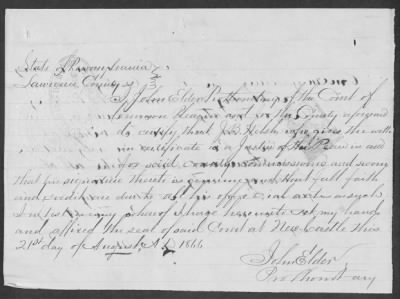 State of Pennsylvania
Lawrence County } SS
I John Elder Prothonotary of the Court of
Common Pleas in and for the County aforesaid
do certify that J. B. who gives the with
in certificate is a Justice of the Peace in and
for said County commissioned and sworn
that his signature thereto is genuine and that full faith
and credit are due to all his official acts as such
in testimony whereof I have hereunto set my hand
and affixed the seal of said Court at New Castle this
21st day of August A.D. 1866
John Elder
Prothonotary